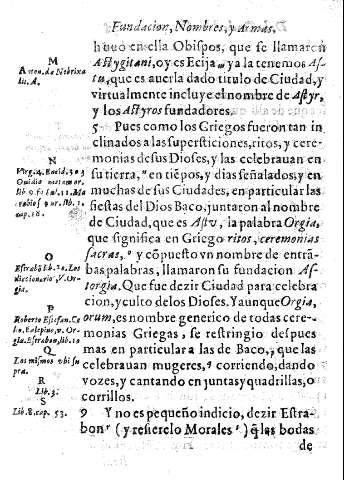 Fundacion, Nombres, y Armas,
huuo en ella Obispos, que se llamaron
Astygitani, oy es Ecija, ya la tenemos As-
tu, que es auerla dado titulo de Ciudad, y
virtualmente incluye el nombre de Astyr,
y los Astyros fundadores.
5 Pues como los Griegos fueron tan in
clinados a las supersticiones, ritos, y cere-
monias de sus Dioses, y las celebrauan en
su tierra, n en tiēpos, y dias señalados, y en
muchas de sus Ciudades, en particular las
fiestas del Dios Baco, juntaron al nombre
de Ciudad, que es Astu, la palabra Orgia,
que significa en Griego ritos, ceremonias
sacras, o y cōpuesto vn nombre de entrā-
bas palabras, llamaron su fundacion As-
torgia. Que fue dezir Ciudad para celebra
cion, y culto de los Dioses. Y aunque Orgia,
orum, es nombre generico de todas cere-
monias Griegas, se restringio despues
mas en particular a las de Baco, p que las
celebrauan mugeres, q corriendo, dando
vozes, y cantando en juntas y quadrillas, o
corrillos.
9 Y no es pequeño indicio, dezir Estra-
bon r (y refierelo Morales s) q̃ las bodas
de
M
Anton. de Nebrixa
lit. A.
N
Virg. 4. Eneid. 303
Ouidio metamor.
Macrobio
cap. 18.
O
Estrabō lib. 10. Los
diccionario, V. Or-
gia.
P
Roberto Estefan. Ca
lepino, v. Or-
gia. Estrabon, lib. 10
Q
Los mismos vbi su
pra.
R
Lib. 3.
S
Lib. 8. cap. 53.